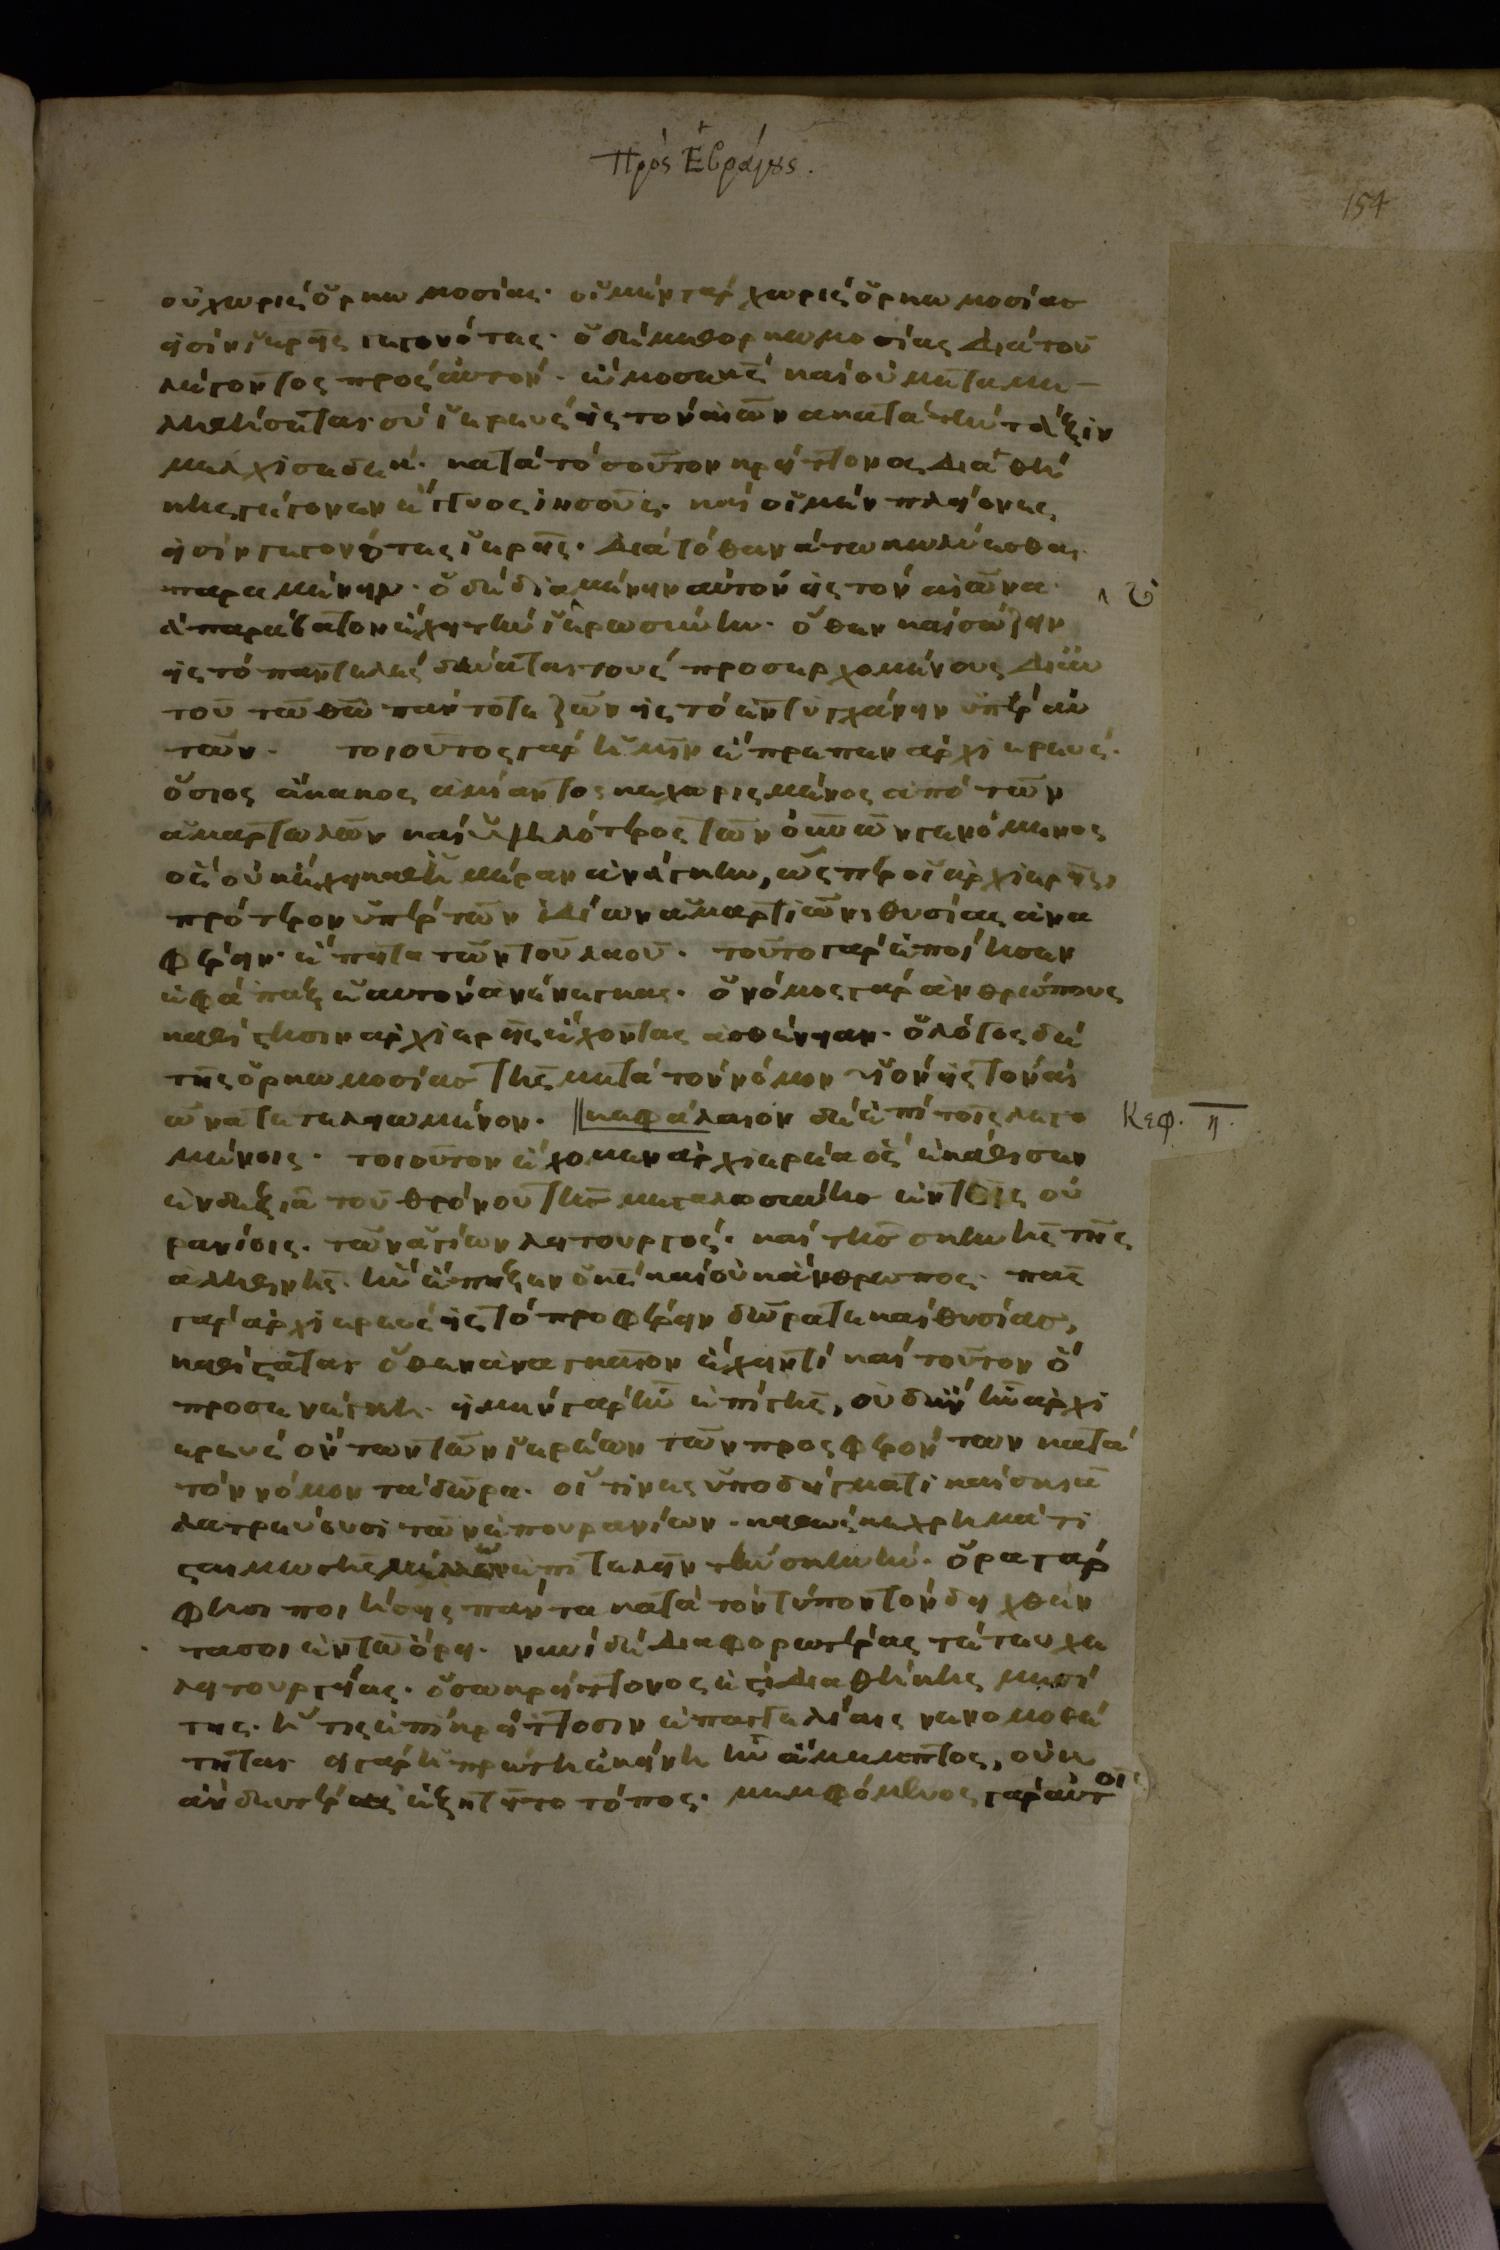 Πρὸς Ἑβραίους.
154
οὐ χωρὶς ὁρκωμοσίας· οἱ μὲν γὰρ χωρὶς ὁρκωμοσίας
εἰσὶν ἱερεῖς γεγονότες· ὁ δὲ μεθορκωμοσίας διὰ τοῦ
λέγοντος πρὸς αὐτόν· ὤμοσε κ̅ς̅ καὶ οὐ μεταμε
ληθήσεται· σὺ ἱερεὺς εἰς τὸν αἰῶνα κατὰ τὴν τάξιν
μελχισεδέκ· κατὰ τοσοῦτον κρείττονος διαθή
κης γέγονεν ἔγγυος ἰησοῦς· καὶ οἱ μὲν πλείονες
εἰσὶν γεγονότες ἱερεῖς· διὰ τὸ θανάτω κωλύεσθαι
παραμένειν· ὁ δὲ διαμένειν αὐτὸν εἰς τὸν αἰῶνα·
ἀπαράβατον ἔχει τὴν ἱερωσύνην· ὅθεν καὶ σώζειν
εἰς τὸ παντελὲς δύναται τοὺς προσερχομένους δι αὐ
τοῦ τῶ θ̅ω̅ πάντοτε ζῶν εἰς τὸ ἐντυγχάνειν ὑπὲρ αὐ
τῶν· τοιοῦτος γὰρ ἡμῖν ἔπρεπεν ἀρχιερεύς·
ὅσιος ἄκακος ἀμίαντος κεχωρισμένος ἀπὸ τῶν
ἁμαρτωλῶν καὶ ὑψηλότερος τῶν ο̅υ̅ν̅ω̅ν̅ γενόμενος
ὃς οὐκ ἔχει καθ ἡμέραν ἀνάγκην, ὥσπερ οἱ ἀρχιερεῖς,
πρότερον ὑπὲρ τῶν ἰδίων ἁμαρτιῶν θυσίας ἀνα
φέρειν· ἔπειτα τῶν τοῦ λαοῦ· τοῦτο γὰρ ἐποίησεν
ἐφάπαξ ἑαυτὸν ἀνενέγκας· ὁ νόμος γὰρ ἀνθρώπους
καθίστησιν ἀρχιερεῖς ἔχοντας ἀσθένειαν· ὁ λόγος δὲ
τῆς ὁρκωμοσίας τῆς μετὰ τὸν νόμον υἱὸν εἰς τὸν αἰ
ῶνα τετελειωμένον· κεφάλαιον δὲ ἐπὶ τοῖς λεγο Κεφ. η̅.
μένοις· τοιοῦτον ἔχομεν ἀρχιερέα ὃς ἐκάθισεν
ἐν δεξιᾶ τοῦ θρόνου τῆς μεγαλοσύνης ἐν τοῖς οὐ
ρανίοις· τῶν ἁγίων λειτουργός· καὶ τῆς σκηνῆς τῆς
ἀληθινῆς· ἣν ἔπηξεν ὁ κ̅ς̅ καὶ οὐκ ἄνθρωπος· πᾶς
γὰρ ἀρχιερεὺς εἰς τὸ προσφέρειν δῶρά τε καὶ θυσίας,
καθίσταται· ὅθεν ἀναγκαῖον ἔχειν τὶ καὶ τοῦτον ὃ
προσενέγκη· εἰ μὲν γὰρ ἦν ἐπὶ γῆς, οὐδ ἂν ἦν ἀρχι
ερεὺς ὄντων τῶν ἱερέων τῶν προσφερόντων κατὰ
τὸν νόμον τὰ δῶρα· οἵτινες ὑποδείγματι καὶ σκιᾶ
λατρεύουσι τῶν ἐπουρανίων· καθὼς κεχρημάτι
σται μωσῆς μέλλων ἐπιτελεῖν τὴν σκηνήν· ὅρα γάρ
φησι ποιήσεις πάντα κατὰ τὸν τύπον τὸν δειχθέν
τα σοι ἐν τῶ ὄρει· νυνὶ δὲ διαφορωτέρας τέτευχε
λειτουργίας· ὅσω κρείττονος ἐστι διαθήκης μεσί
της· ἥτις ἐπὶ κρείττοσιν ἐπαγγελίαις νενομοθέ
τηται· εἰ γὰρ ἡ πρώτη ἐκείνη ἦν ἄμεμπτος, οὐκ
ἂν δευτέρας ἐζητεῖτο τόπος· μεμφόμενος γὰρ αὐτοῖς